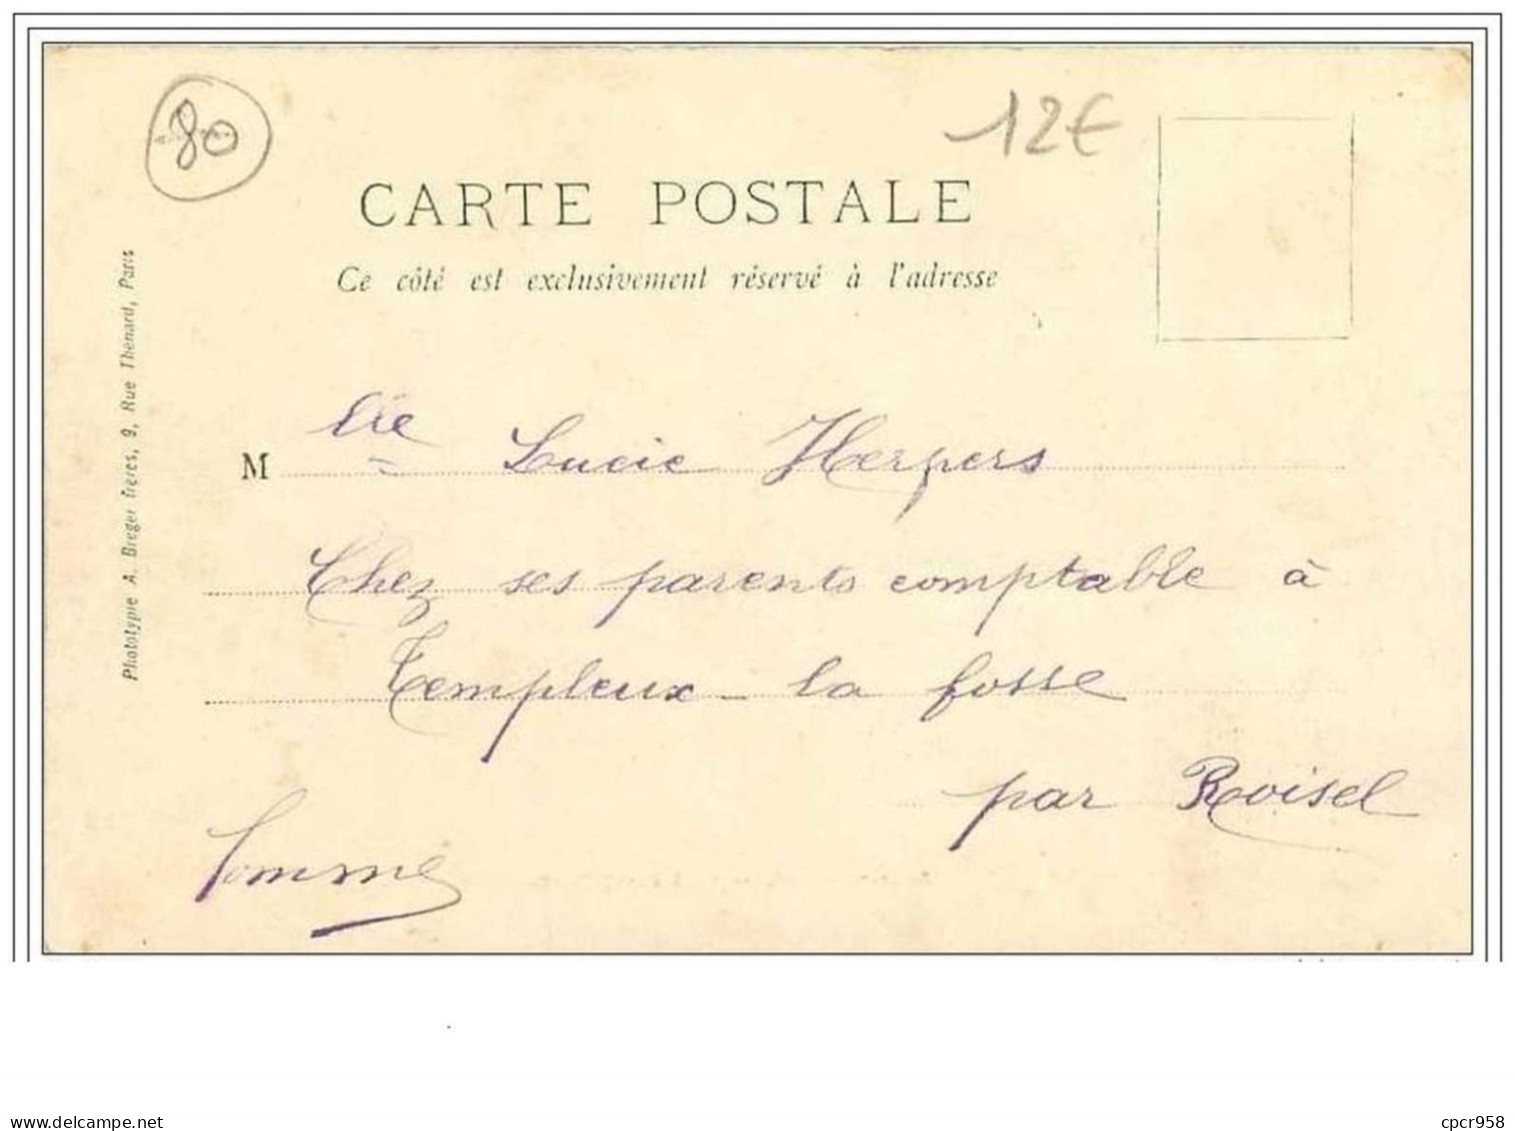 80
12€
CARTE POSTALE
Ce côté est exclusivement réservé à l'adresse
Phototypie A. Breger frères, 9, Rue Thénard, Paris
M lle Lucie Herpers
Chez ses parents comptable à
Templeux-la fosse
par Roisel
Somme
delcampe.net
cpcr958